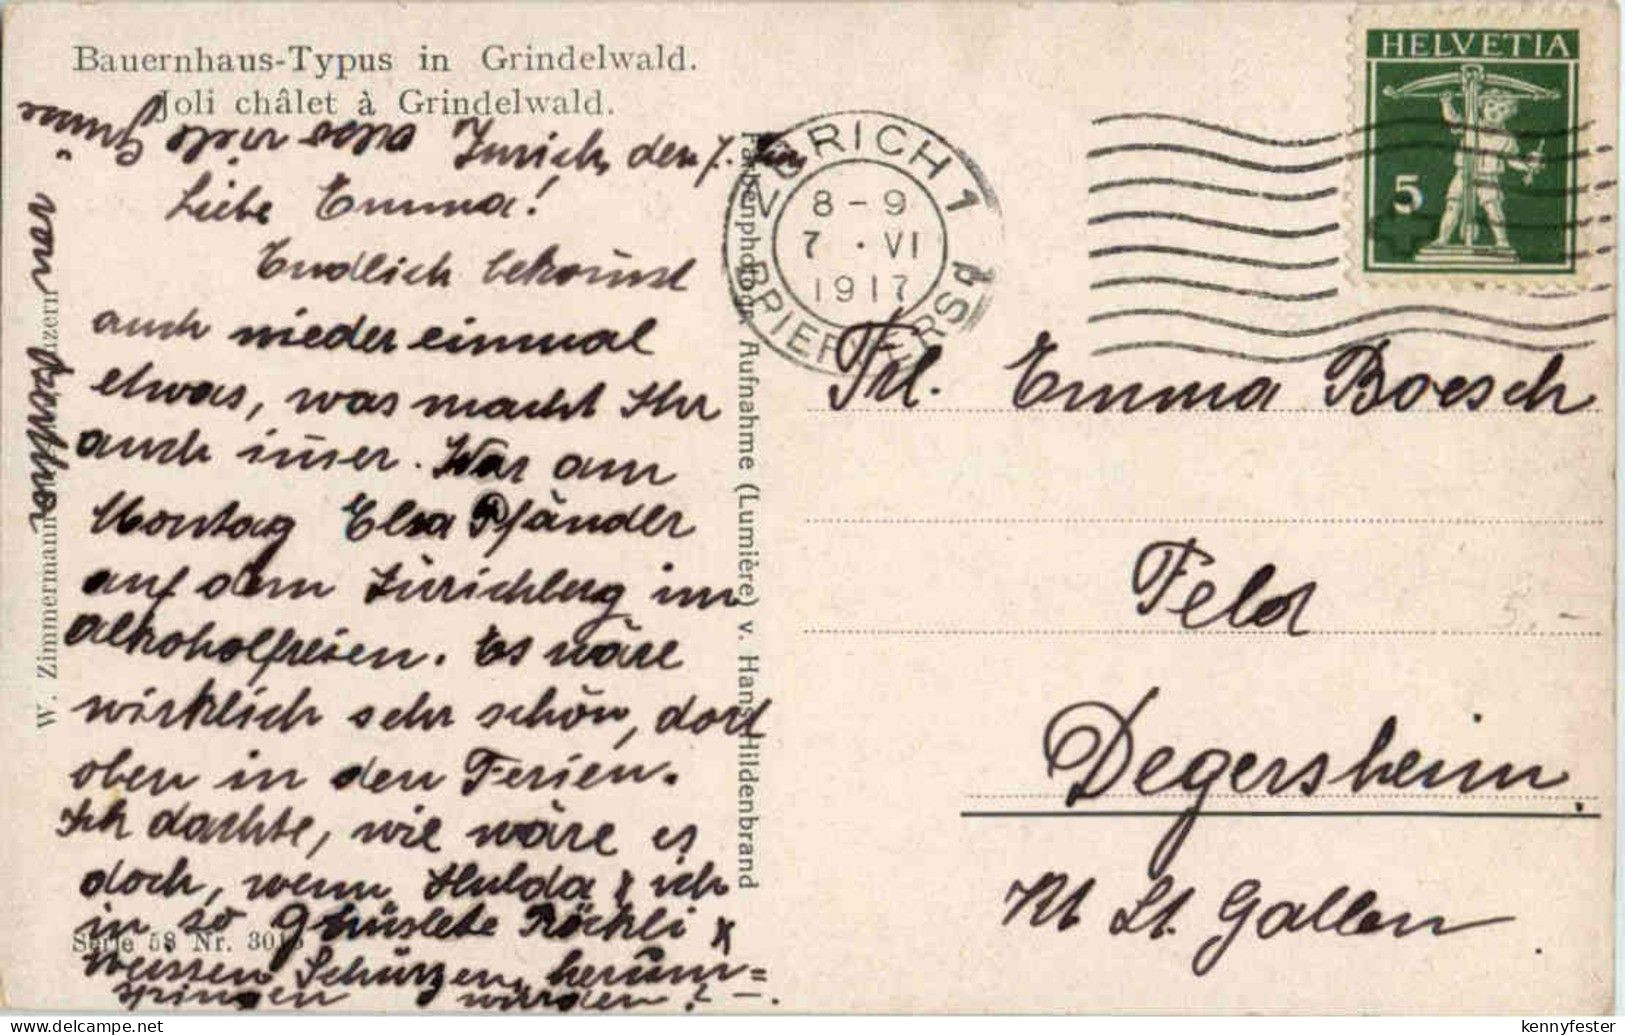 Bauernhaus-Typus in Grindelwald.
Joli châlet à Grindelwald.
Zürich, den 7. Juni
Liebe Emma!
Endlich bekom̄st
auch wieder einmal
etwas, was macht Ihr
auch im̄er. War am
Montag Elsa Pfändler
auf dem Zürichberg im
alkoholfreien. Es wäre
wirklich sehr schön, dort
oben in den Ferien.
Ich dachte, wie wäre es
doch, wenn Hulda & ich
in so ghüslete Röckli &
weissen Schürzen herum=
springen würden! -.
viele Grüsse
von
Serie 58 Nr. 301
W. Zimmermann
Farbenphotogr. Aufnahme (Lumière) v. Hans Hildenbrand
ZÜRICH 1
8-9
7 · VI
1917
BRIEFVERSD
HELVETIA
5
Frl. Emma Boesch
Feld
Degersheim.
Kt St. Gallen
5.-
delcampe.net
kennyfester